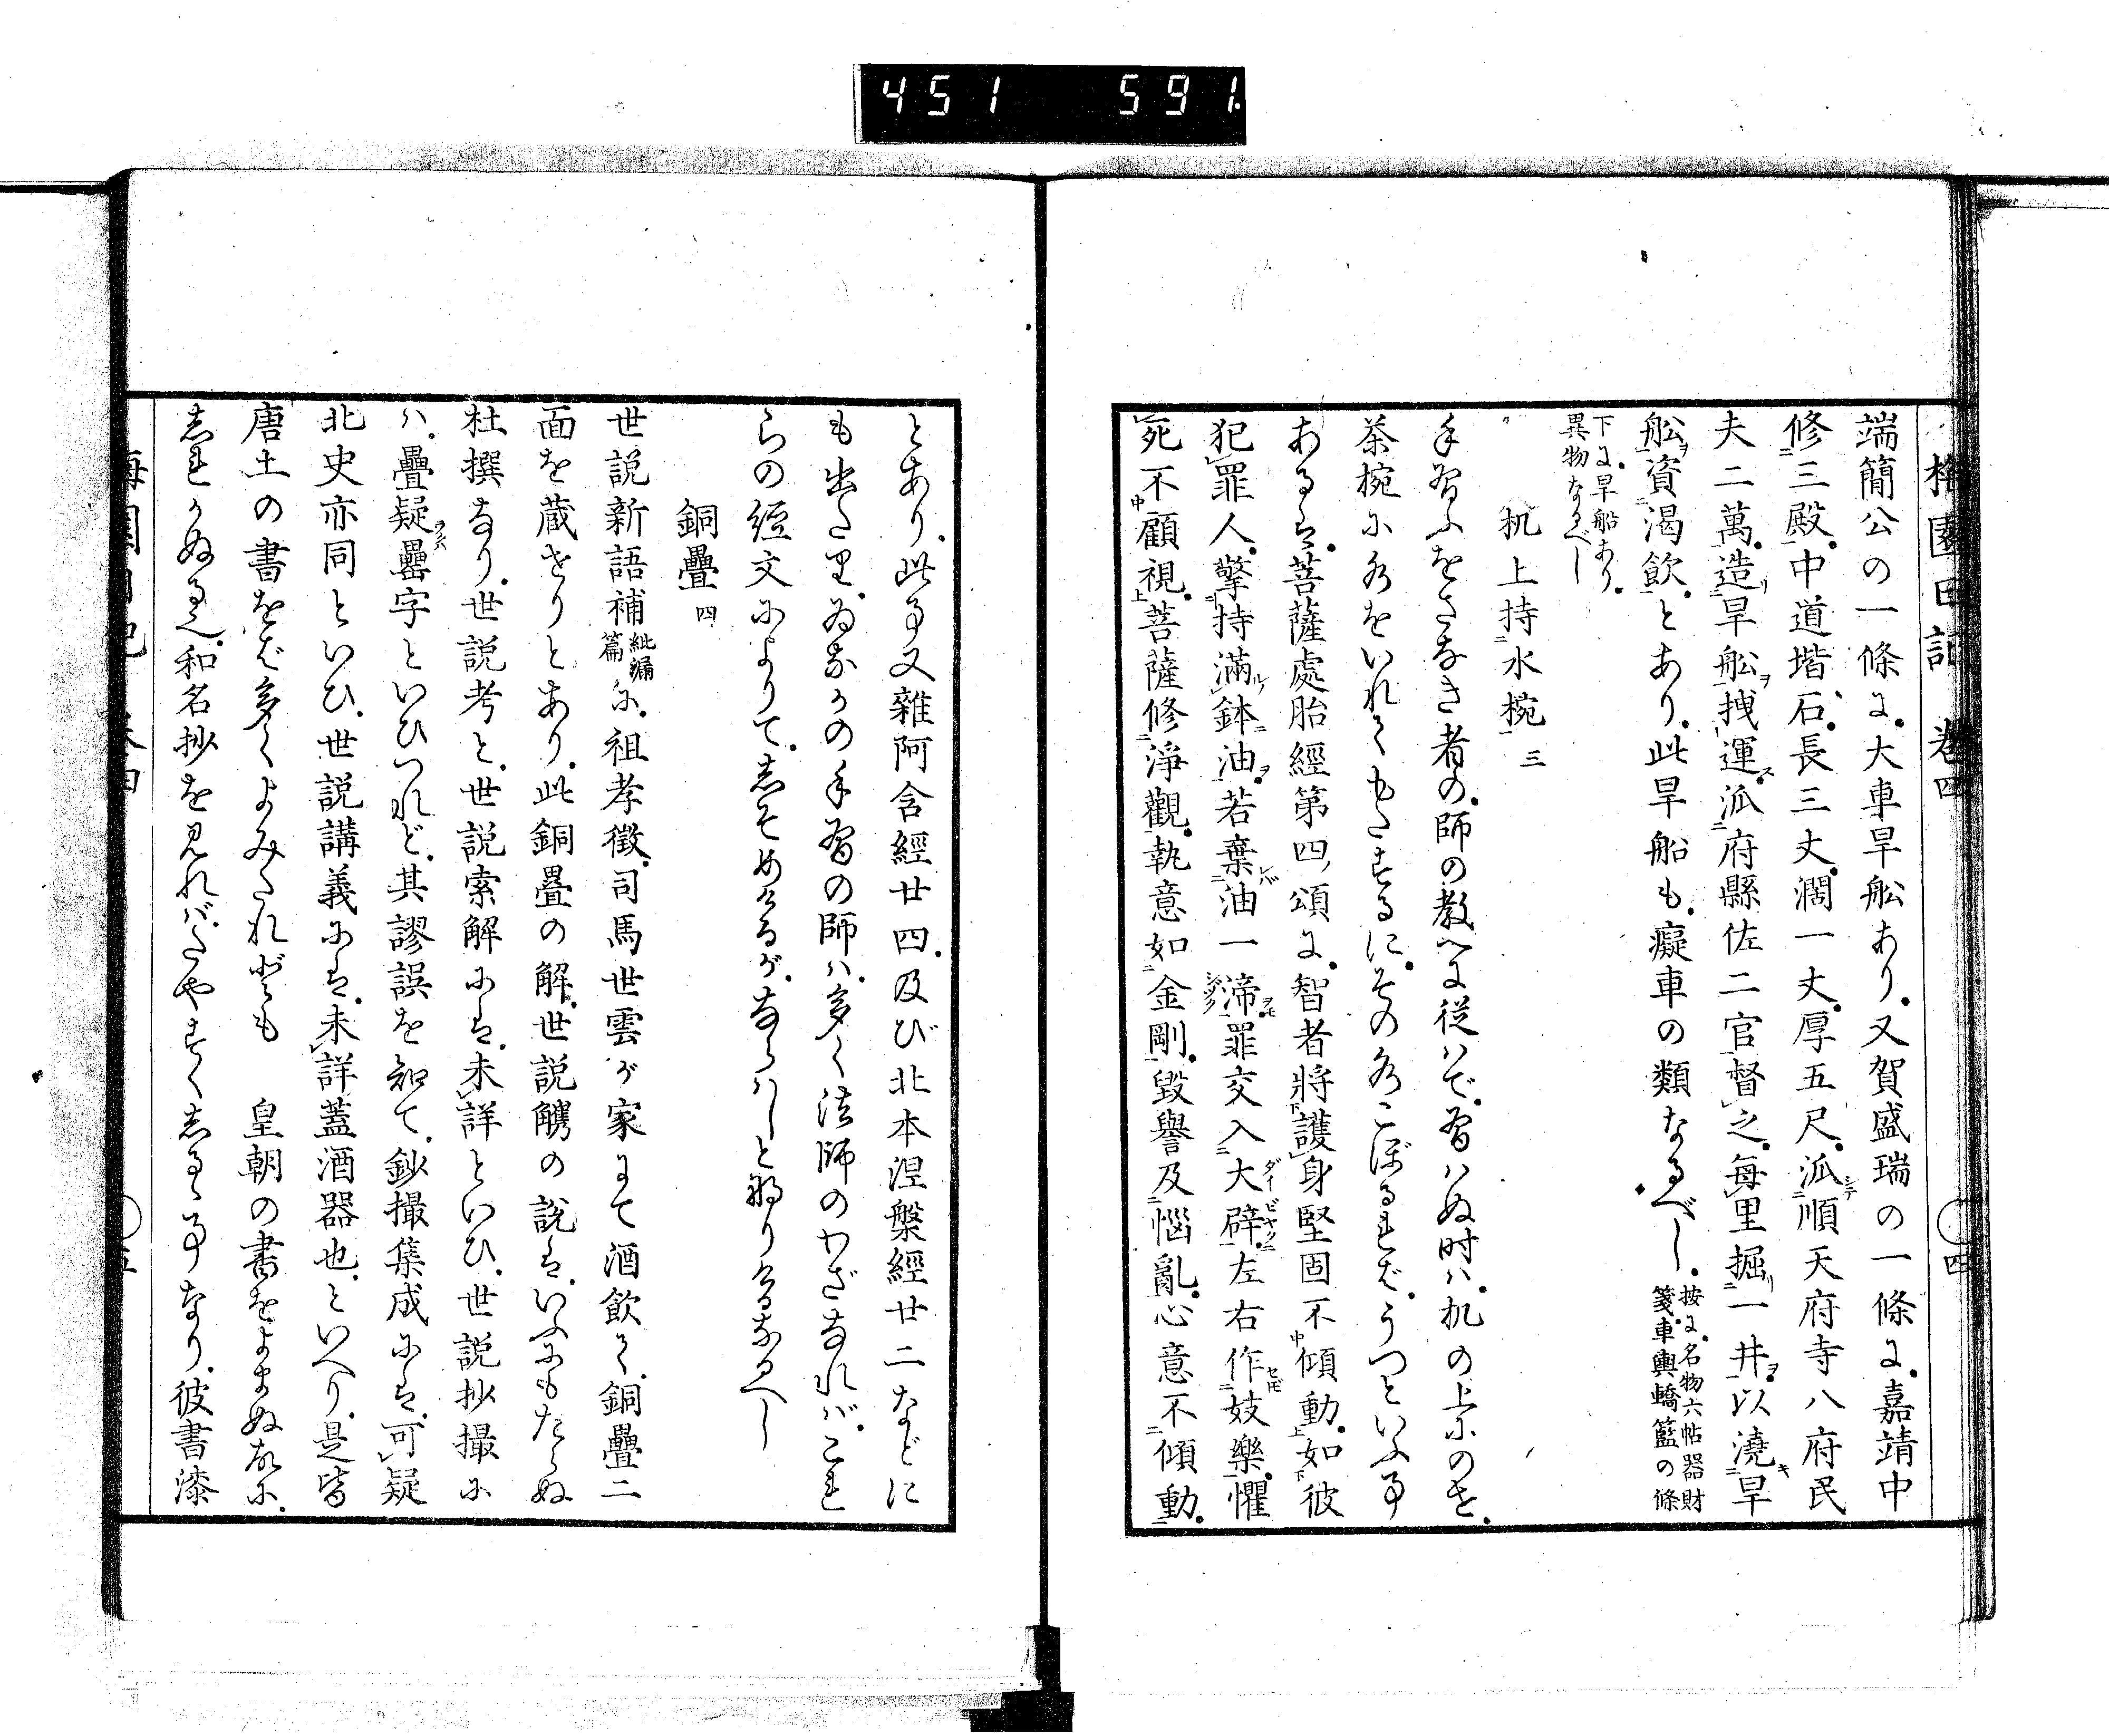 451 591
梅園日記 卷四 四
端簡公の一條に。大車旱舩あり。又賀盛瑞の一條に。嘉靖中
修三殿。中道堦石。長三丈。濶一丈。厚五尺。泒順天府寺八府民
夫二萬。造旱舩拽運。泒府縣佐二官督之。每里掘一井。以澆旱
舩資渴飲。とあり。此旱船も。癡車の類なるべし。按に。名物六帖器財
箋。車輿轎籃の條
下に。旱船あり。
異物なるべし
机上持水椀三
手習ふをさなき者の。師の教へに従はで。習はぬ時ハ。机の上にのせ。
茶椀に水をいれてもたするに。その水こぼるれば。うつといふ事
あるは。菩薩處胎經第四、頌に。智者將護身堅固不傾動。如彼
犯罪人。擎持滿鉢油。若棄油一渧。罪交入大辟。左右作妓樂。懼
死不顧視。菩薩修淨觀。執意如金剛。毀譽及惱亂。心意不傾動。
とあり。此事又雜阿含經廿四。及び北本涅槃經廿二などに
も出たり。ゐなかの手習の師ハ。多く法師のわざなれバ。これ
らの經文によりて。しそめけるが。ならハしと成りけるなるべし
銅疊四
世説新語補紕漏篇に。祖孝徵。司馬世雲が家にて酒飲て。銅疊二
面を蔵せりとあり。此銅疊の解。世説觿の説は。いふにもたらぬ
杜撰なり。世説考と。世説索解には。未詳といひ。世説抄撮に
ハ。疊疑罍字といひつれど。其謬誤を知て。鈔撮集成には。可疑
北史亦同といひ。世説講義には。未詳蓋酒器也。といへり。是皆
唐土の書をば多くよみたれども 皇朝の書をよまぬ故に。
しれかぬる也。和名抄を見れバ。たやすくしるゝ事なり。彼書漆